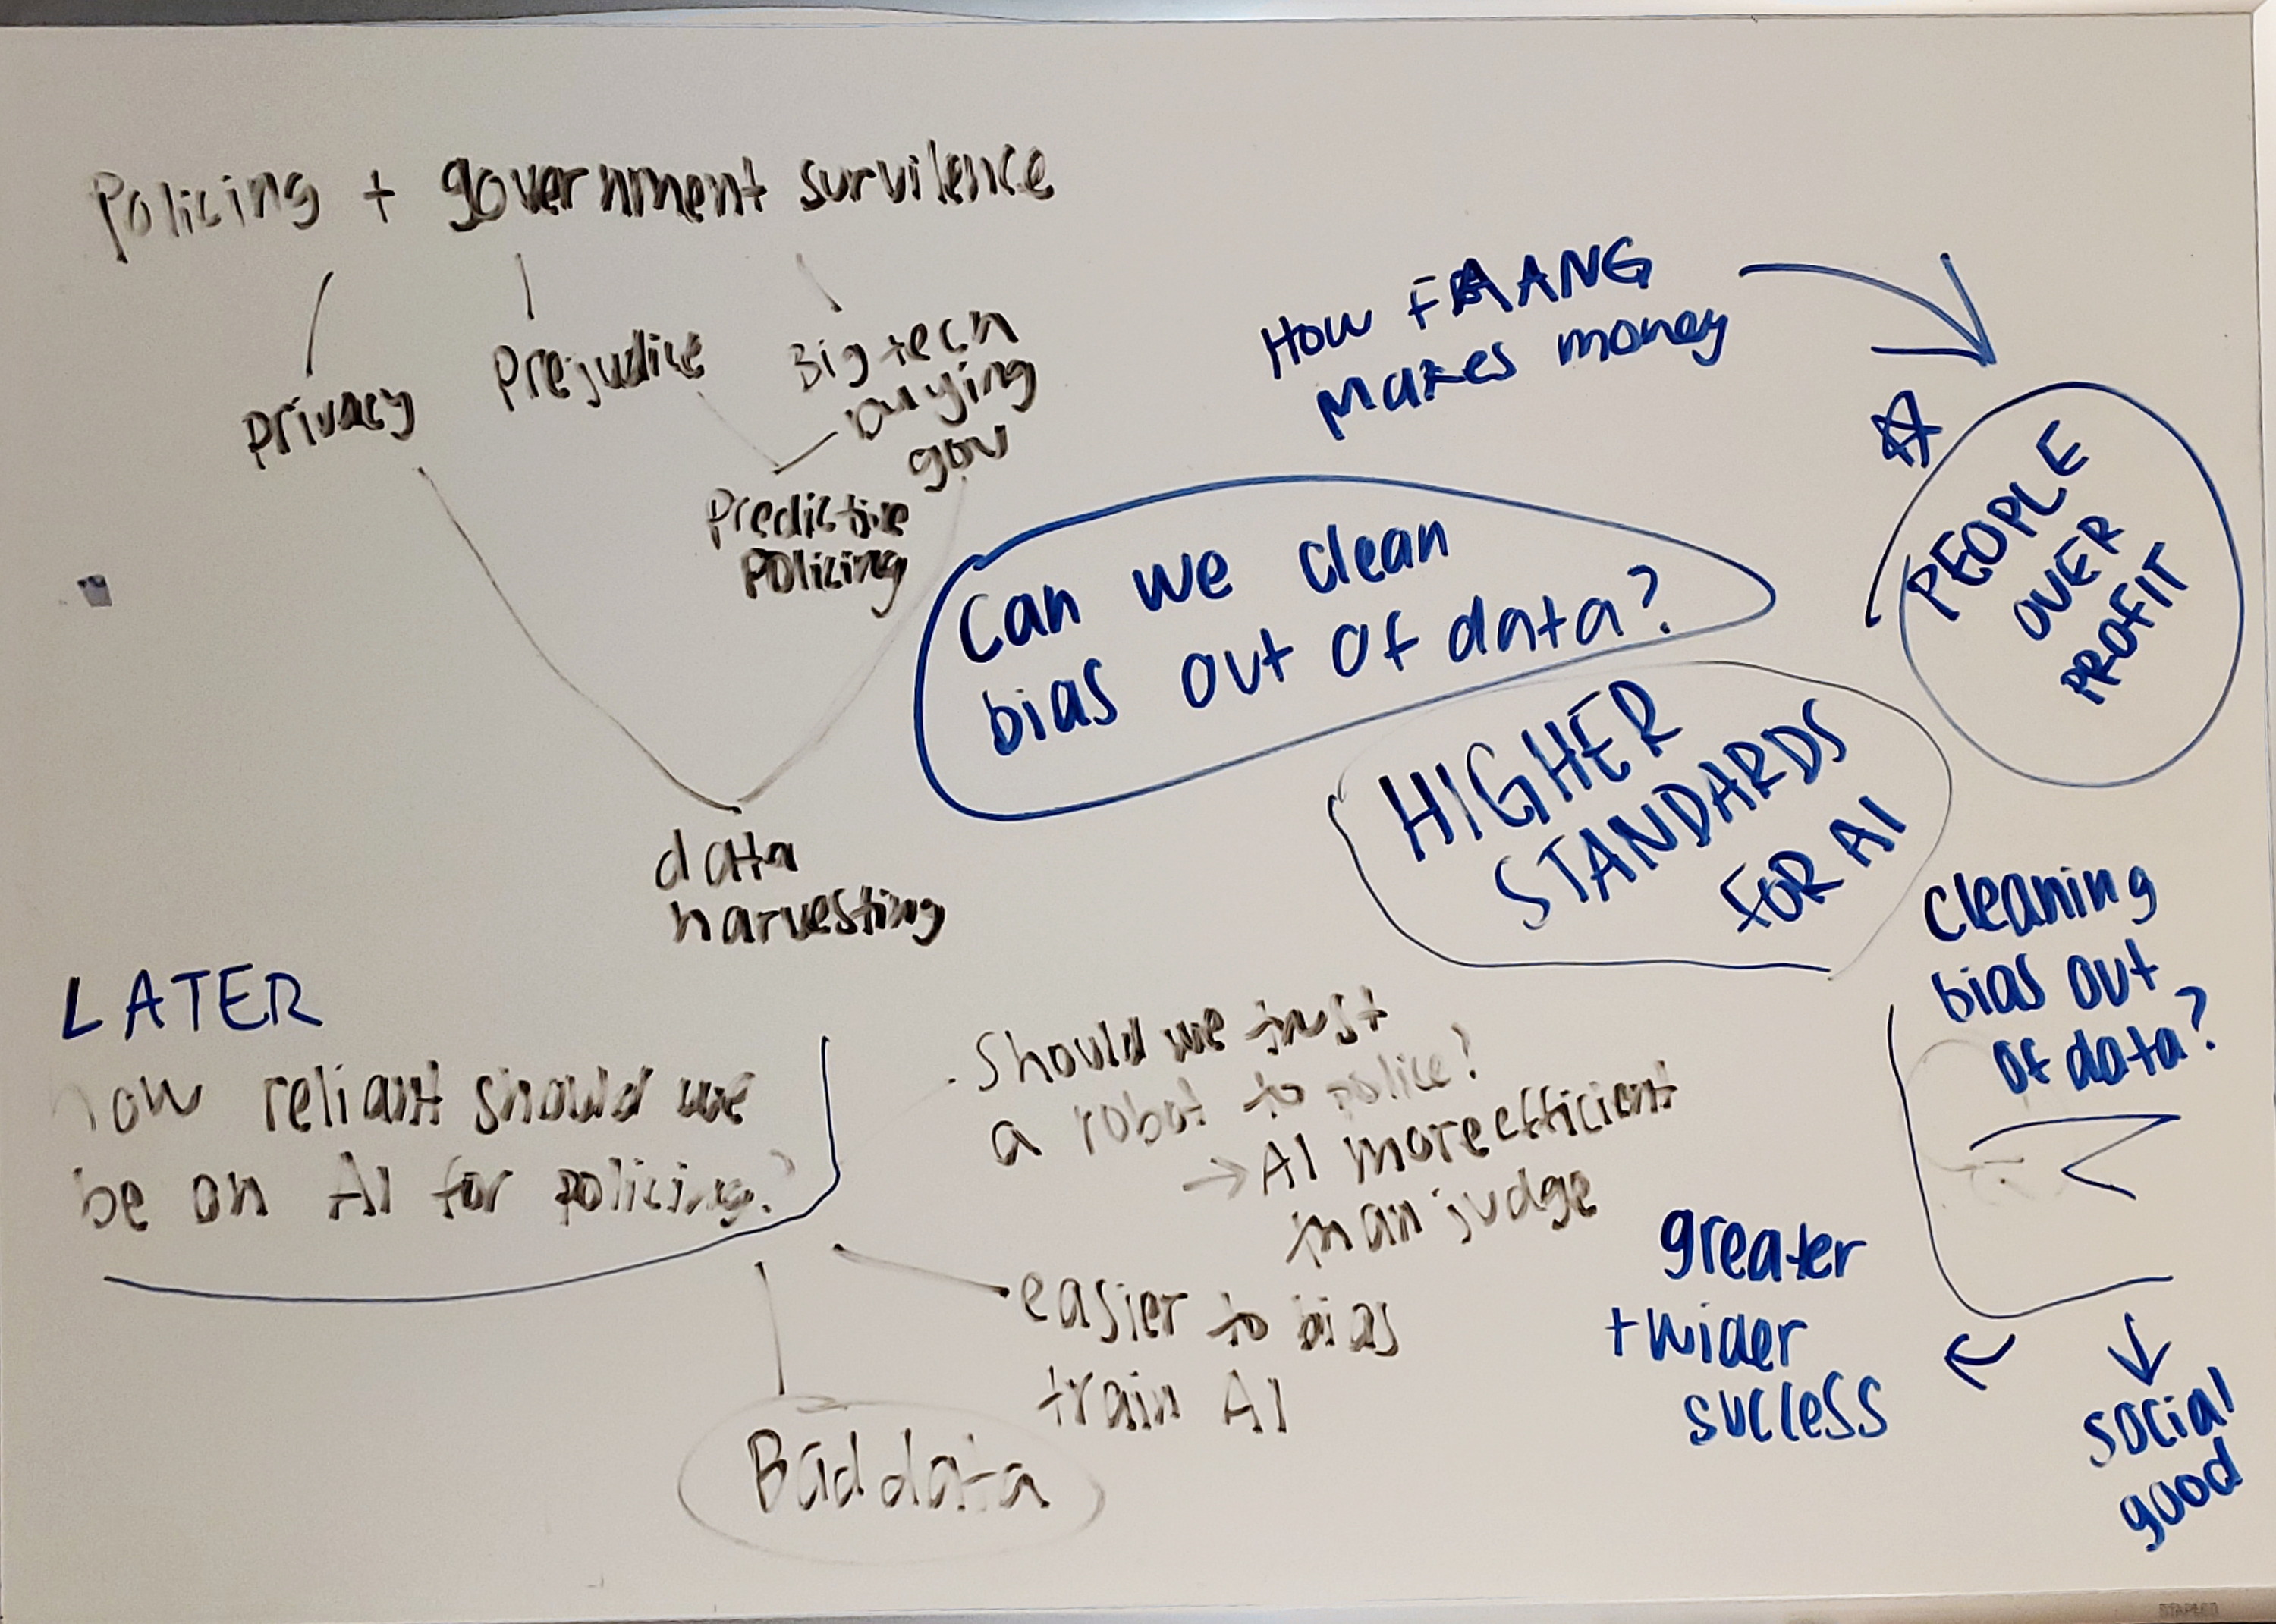 Policing + government survilence
privacy
Prejudice
Big tech
buying
gov
Predictive
Policing
data
harvesting
How FAANG
makes money
PEOPLE
OVER
PROFIT
Can we clean
bias out of data?
HIGHER
STANDARDS
FOR AI
cleaning
bias out
of data?
greater
+ wider
success
social
good
LATER
how reliant should we
be on AI for policing?
Should we trust
a robot to police?
→ AI more efficient
than judge
easier to bias
train AI
Bad data
STAPLES